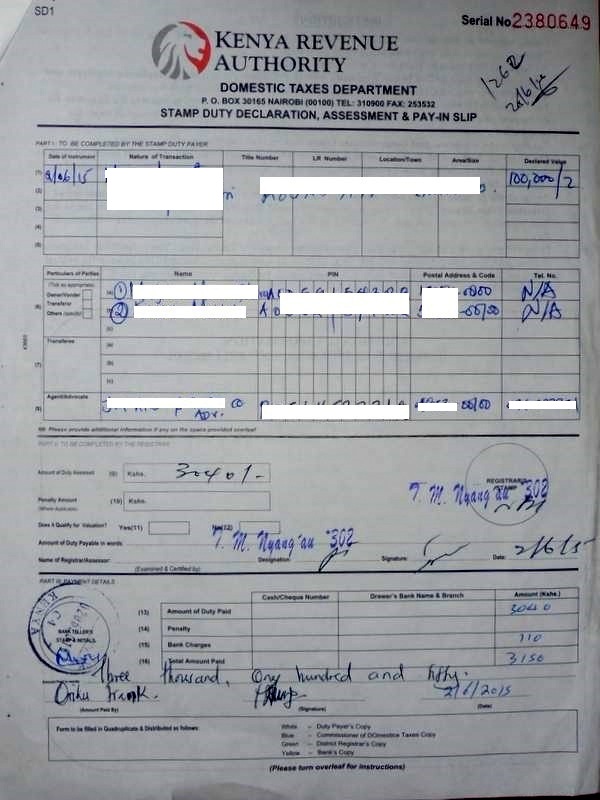 SD1
Serial No 2380649
KENYA REVENUE
AUTHORITY
DOMESTIC TAXES DEPARTMENT
P. O. BOX 30165 NAIROBI (00100) TEL: 310900 FAX: 253532
STAMP DUTY DECLARATION, ASSESSMENT & PAY-IN SLIP
PART I: TO BE COMPLETED BY THE STAMP DUTY PAYER
Date of Instrument Nature of Transaction Title Number LR Number Location/Town Area/Size Declared Value
(1) 2/06/15 100,000/2
(2)
(3)
(4)
(5)
Particulars of Parties Name PIN Postal Address & Code Tel. No.
(Tick as appropriate)
Owner/Vendor
Transferor
Others (specify)
(6)
(a) 1 N/A
2 00100 N/A
(c)
Transferee
(7)
(a)
(b)
(c)
Agent/Advocate
(8) co 00100
ADV.
NB: Please provide additional information if any on the space provided overleaf
PART II: TO BE COMPLETED BY THE REGISTRAR
Amount of Duty Assessed (9) Kshs. 3040/-
REGISTRAR'S
STAMP
T. M. Nyang'au 302
Penalty Amount (10) Kshs.
(Where Applicable)
Does it Qualify for Valuation? Yes(11) No(12)
Amount of Duty Payable in words
T. M. Nyang'au 302
Name of Registrar/Assessor: Designation: Signature: Date: 2/6/15
(Examined & Certified by)
PART III: PAYMENT DETAILS
Cash/Cheque Number Drawer's Bank Name & Branch Amount (Kshs.)
(13) Amount of Duty Paid 3040
(14) Penalty
(15) Bank Charges 110
(16) Total Amount Paid 3150
KENYA
BANK TELLER'S
STAMP & INITIALS
Three thousand, One hundred and fifty.
2/6/2015
(Amount Paid By) (Signature) (Date)
Form to be filled in Quadruplicate & Distributed as follows:
White – Duty Payer's Copy
Blue – Commissioner of DOmestice Taxes Copy
Green – District Registrar's Copy
Yellow – Bank's Copy
(Please turn overleaf for instructions)